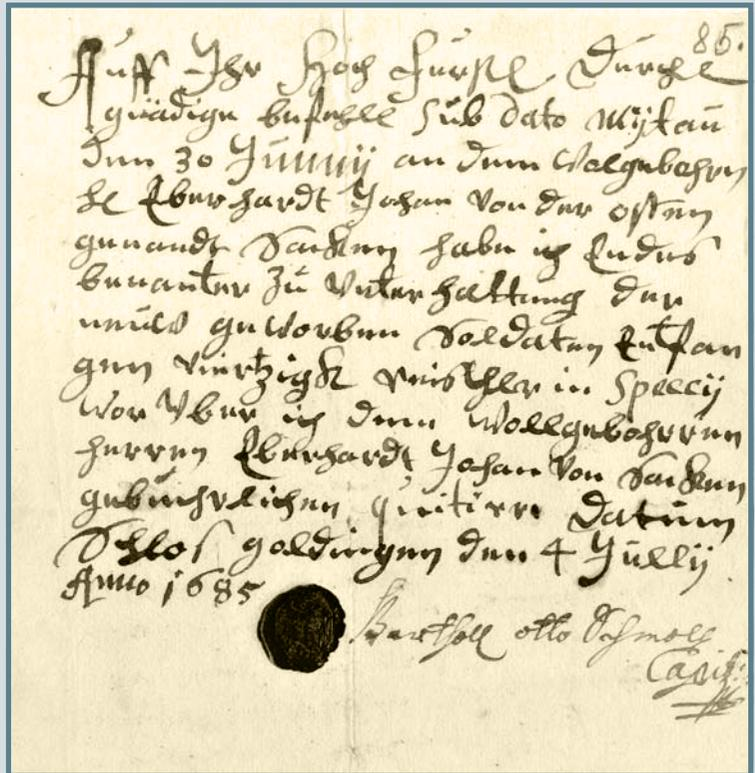 85.
Auff Ihr Hoch Fürstl. Durchl
gnädige befehll sub dato Mÿtau
den 30 Junnÿ an dem Wolgebohrn
H Eberhardt Johan von der Osten
genandt Sacken habe ich Endes
benanter zu Vnterhaltung der
neuw geworben Soldaten Entfan
gen viertzigk Reisthlr in Specÿ
wor Vber ich dem Wollgebohrnen
herren Eberhardt Johan von Sacken
gebüehrlichen quitire Datum
Schlos goldingen den 4 Jullÿ
Anno 1685
Barthold otto Schmoll
Capit